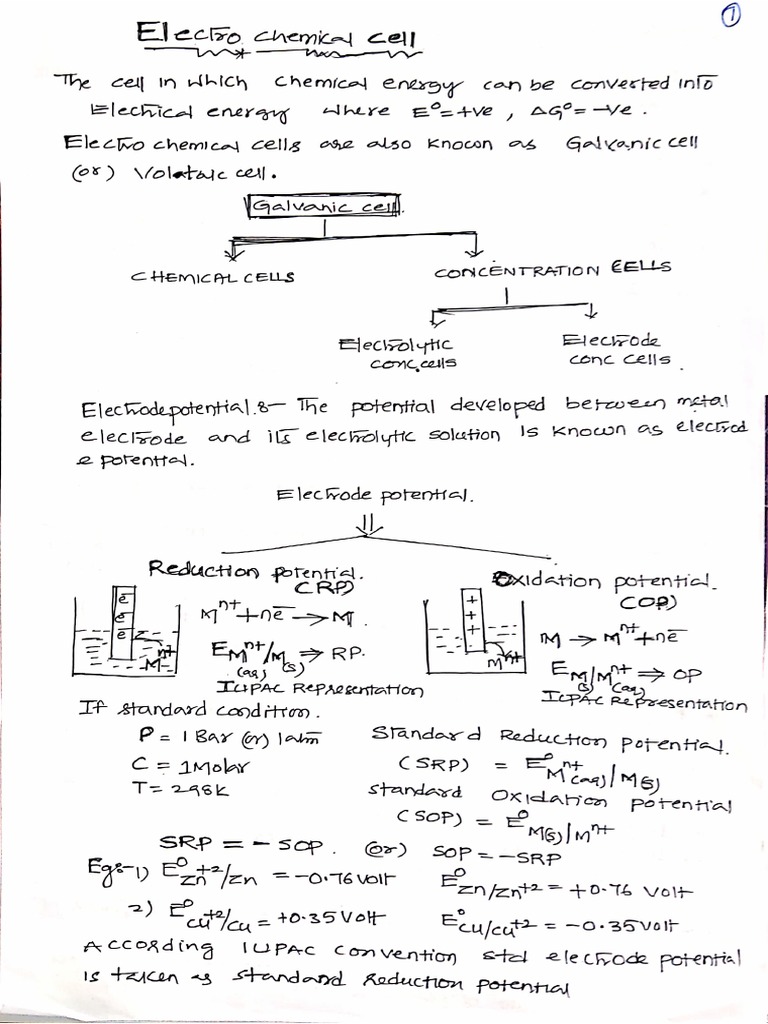 1
Electro chemical cell
The cell in which chemical energy can be converted into
Electrical energy where E⁰=+ve, ΔG⁰=-ve.
Electro chemical cells are also known as Galvanic cell
(or) Volataic cell.
Galvanic cell.
CHEMICAL CELLS CONCENTRATION CELLS
Electrolytic Electrode
conc.cells conc cells.
Electrode potential :- The potential developed between metal
electrode and its electrolytic solution is known as electrod
e potential.
Electrode potential.
⇓
Reduction potential. Oxidation potential.
(RP) (OP)
e⁻ e⁻ e⁻ Mⁿ⁺
Mⁿ⁺+ne⁻ → M.
E Mⁿ⁺(aq)/M(s) ⇒ RP.
IUPAC Representation
+ + + Mⁿ⁺
M → Mⁿ⁺+ne⁻
E M(s)/Mⁿ⁺(aq) ⇒ OP
IUPAC Representation
If standard condition.
P = 1 Bar (or) 1atm
C = 1Molar
T = 298K
Standard Reduction potential.
(SRP) = E⁰ Mⁿ⁺(aq)/M(s)
Standard Oxidation potential
(SOP) = E⁰ M(s)/Mⁿ⁺
SRP = - SOP. (or) SOP = -SRP
Eg:-1) E⁰ Zn⁺²/Zn = -0.76 Volt E⁰ Zn/Zn⁺² = +0.76 Volt
2) E⁰ Cu⁺²/Cu = +0.35 Volt E⁰ Cu/Cu⁺² = -0.35 Volt
According IUPAC convention std electrode potential
is taken as standard Reduction potential